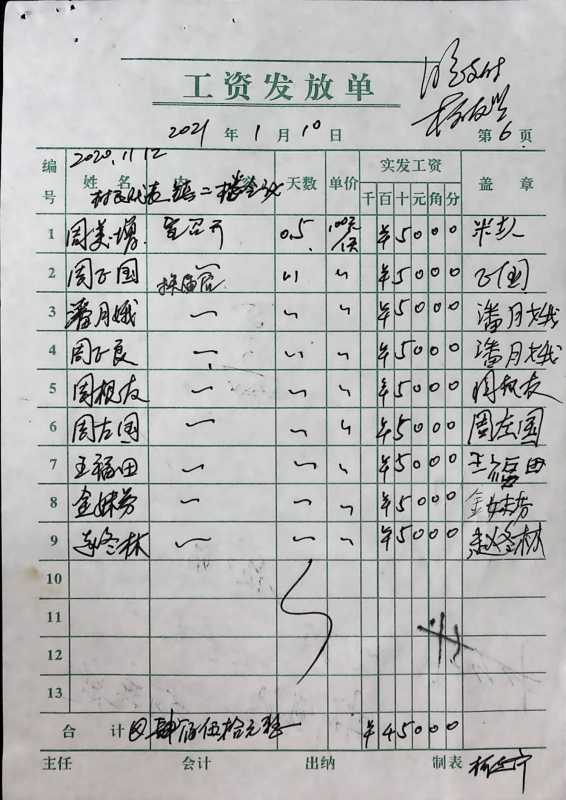 工资发放单
2021年1月10日 第6页
2020.11.12
编号 姓名 天数 单价 实发工资 盖章
村民代表 镇二楼会议
千百十元角分
1 周美增 室召开 0.5 100元/天 ¥5000
2 周正国 〃 〃 ¥5000 正国
3 潘月娥 〃 〃 〃 ¥5000 潘月娥
4 周正良 〃 〃 〃 ¥5000 潘月娥
5 周根友 〃 〃 〃 ¥5000 周根友
6 周左国 〃 〃 〃 ¥5000 周左国
7 王福田 〃 〃 〃 ¥5000 王福田
8 金妹芳 〃 〃 〃 ¥5000 金妹芳
9 赵冬林 〃 〃 〃 ¥5000 赵冬林
10
11
12
13
合计 肆佰伍拾元整 ¥45000
主任 会计 出纳 制表